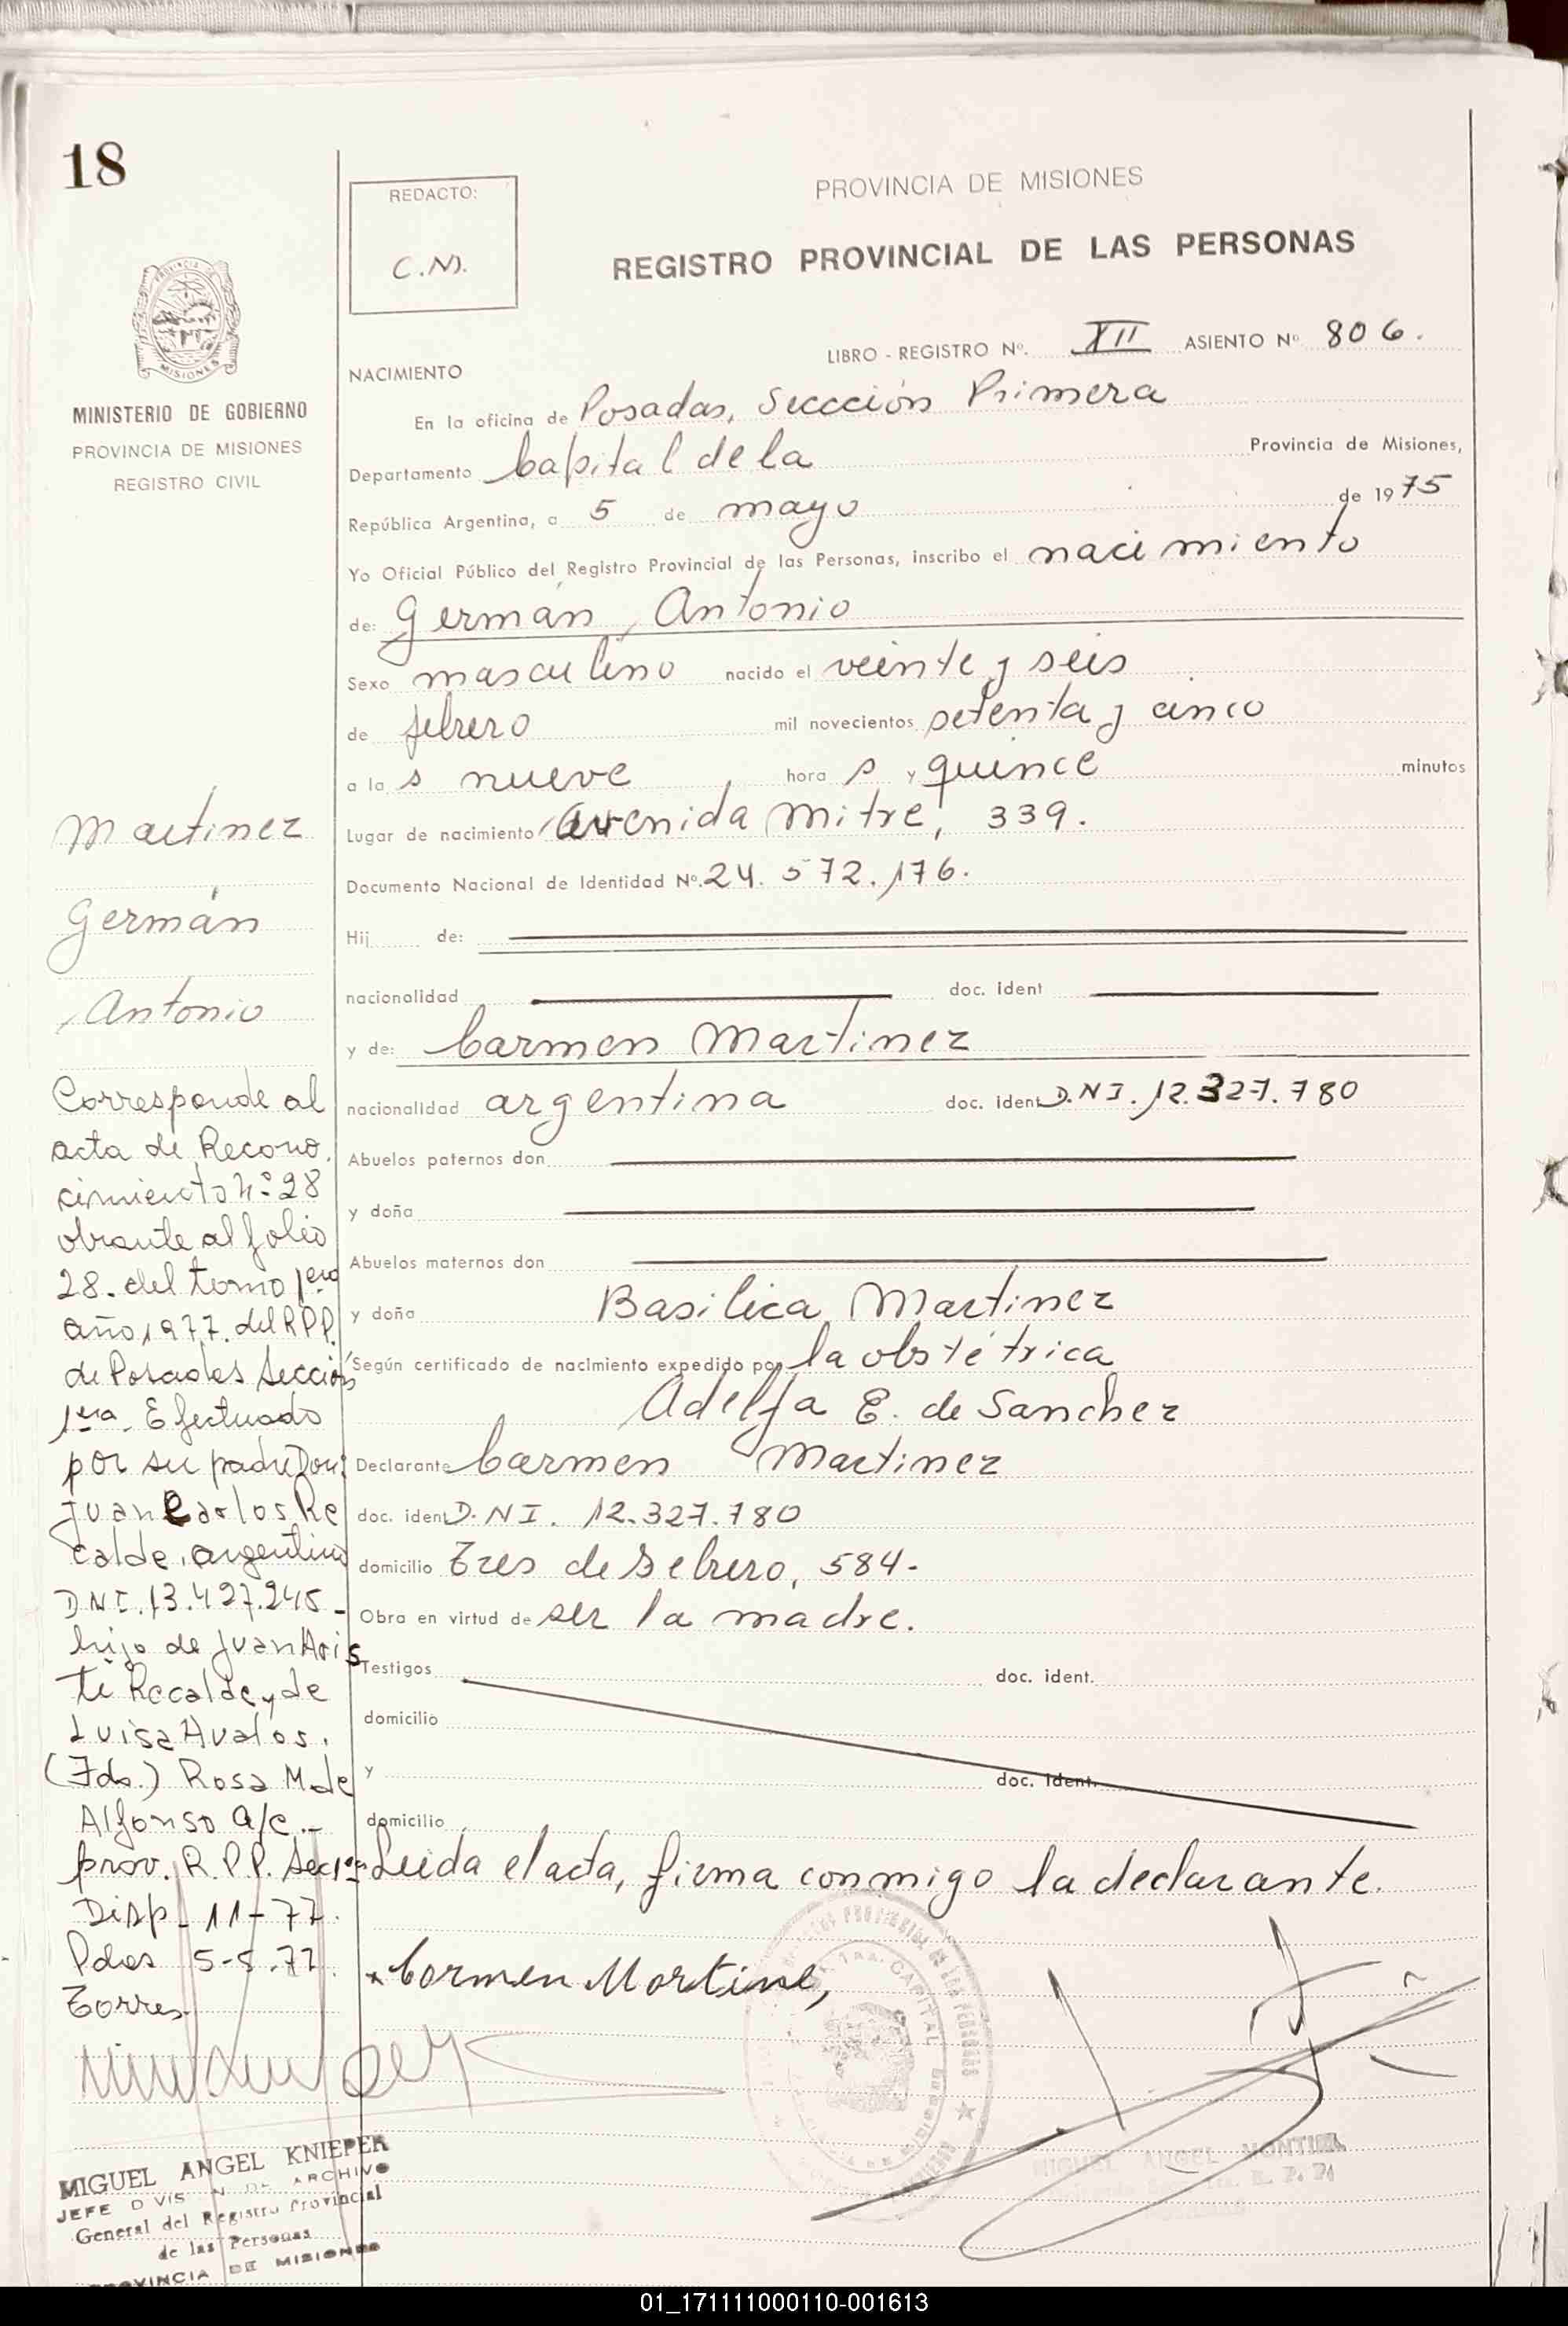 18
REDACTO:
C.N.
PROVINCIA DE MISIONES
REGISTRO PROVINCIAL DE LAS PERSONAS
LIBRO - REGISTRO Nº. XII ASIENTO Nº 806.
PROVINCIA DE
MISIONES
MINISTERIO DE GOBIERNO
PROVINCIA DE MISIONES
REGISTRO CIVIL
NACIMIENTO
En la oficina de Posadas, Seccción Primera
Departamento Capital de la Provincia de Misiones,
República Argentina, a 5 de mayo de 1975
Yo Oficial Público del Registro Provincial de las Personas, inscribo el nacimiento
de: Germán, Antonio
Sexo masculino nacido el veinte y seis
de febrero mil novecientos setenta y cinco
a la s nueve hora s y quince minutos
Lugar de nacimiento Avenida Mitre, 339.
Documento Nacional de Identidad Nº. 24.572.176.
Hij de:
nacionalidad doc. ident
y de: Carmen Martinez
nacionalidad argentina doc. ident D.N.I. 12.327.780
Abuelos paternos don
y doña
Abuelos maternos don
y doña Basilica Martinez
Según certificado de nacimiento expedido por la obstétrica
Adelfa E. de Sanchez
Declarante Carmen Martinez
doc. ident D.N.I. 12.327.780
domicilio Tres de Febrero, 584.
Obra en virtud de ser la madre.
Testigos doc. ident.
domicilio
y doc. ident.
domicilio
Leida el acta, firma conmigo la declarante.
Carmen Martinez
Martinez
Germán
Antonio
Corresponde al
acta de Recono.
cimiento Nº 28
obrante al folio
28. del tomo 1ero
año 1977. del R.P.P.
de Posadas Sección
1era. Efectuado
por su padre Don:
Juan Carlos Re
calde, argentino
DNI. 13.427.245 -
hijo de Juan Aris
ti Recalde y de
Luisa Avalos.
(Fdo.) Rosa M. de
Alfonso a/c.-
prov. R.P.P. Secc 1ª
Disp. 11-77.
Pdas 5-5-77.
Torres
MIGUEL ANGEL KNIEPER
JEFE DIVISIN DE ARCHIVO
General del Registro Provincial
de las Personas
PROVINCIA DE MISIONES
MIGUEL ANGEL MONTIEL
01_171111000110-001613